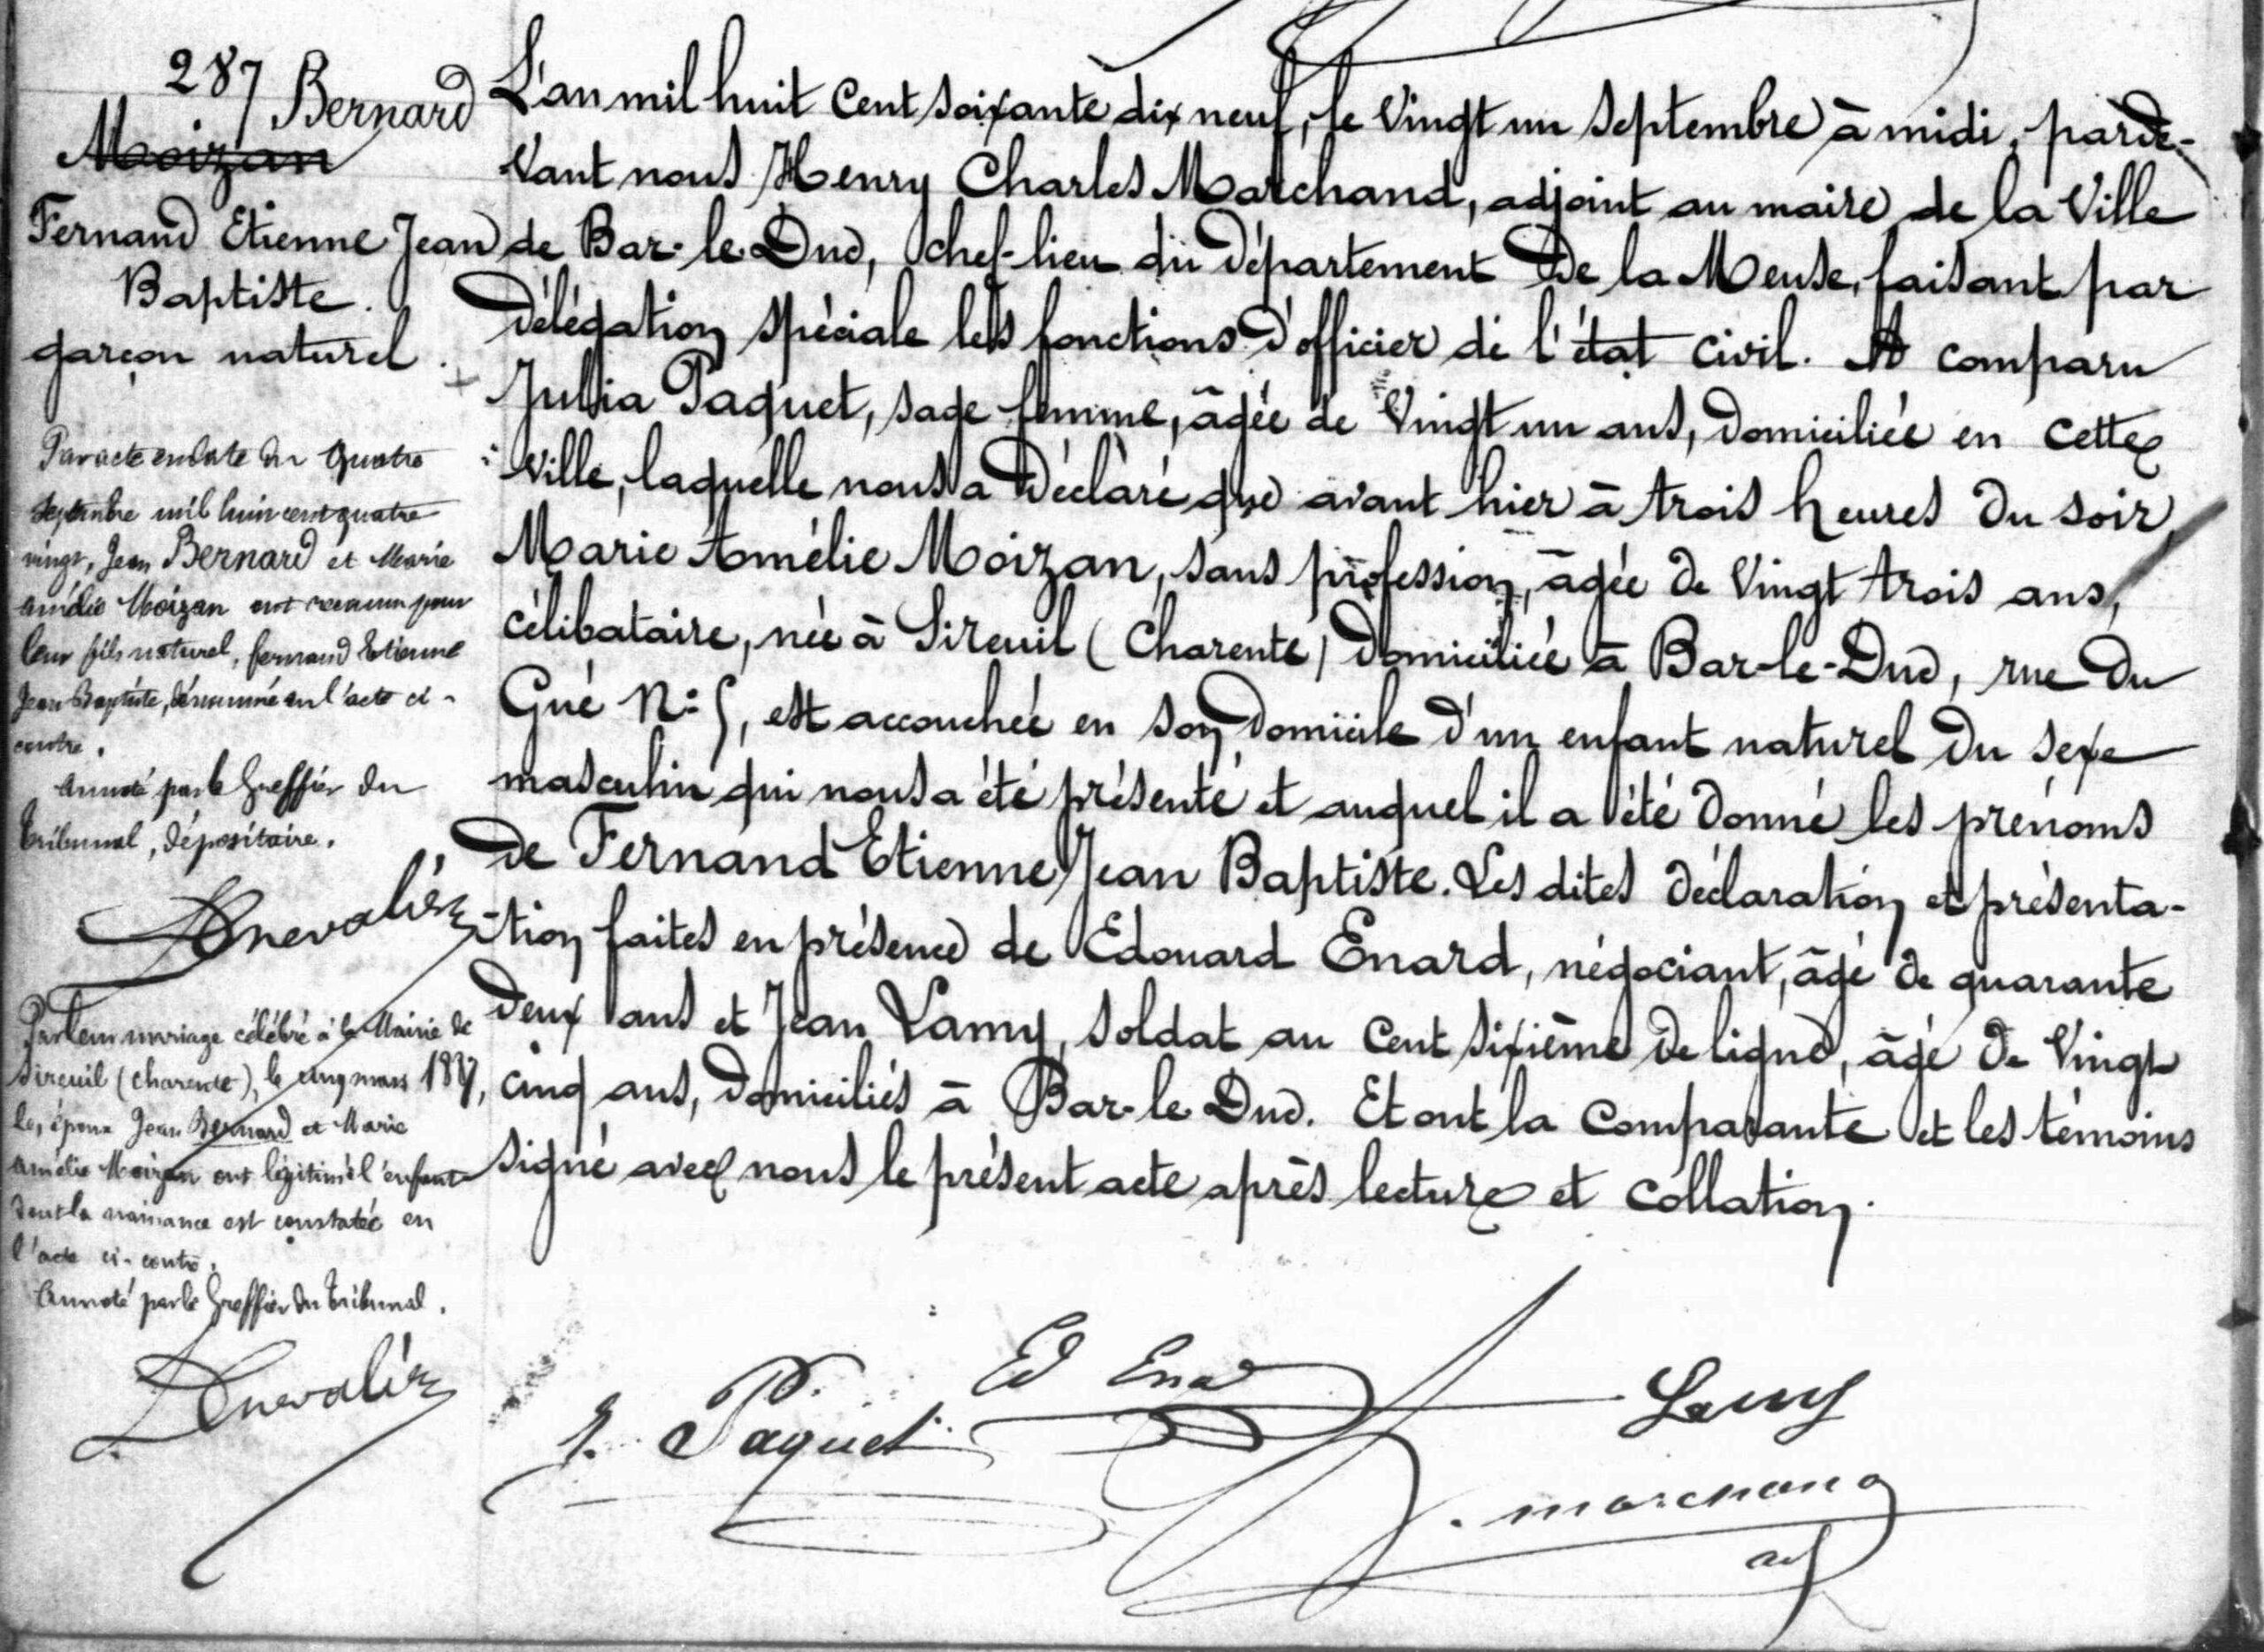 287 Bernard
Moizan
Fernand Etienne Jean
Baptiste.
garçon naturel.
Par acte en date du quatre
septembre mil huit cent quatre
vingt, Jean Bernard et Marie
amélie Moizan ont reconnu pour
leur fils naturel, fernand Etienne
Jean Baptiste, dénommé en l'acte ci-
contre.
Annoté par le Greffier du
Tribunal, dépositaire.
Chevalier
Par leur mariage célébré à la Mairie de
Sireuil (charente), le cinq mars
les époux Jean Bernard et Marie
Amélie Moizan ont légitimé l'enfant
dont la naissance est constatée en
l'acte ci-contre.
Annoté par le Greffier du Tribunal.
Chevalier
L'an mil huit cent soixante dix neuf, le vingt un septembre à midi, parde-
vant nous Henry Charles Marchand, adjoint au maire de la Ville
de Bar-le-Duc, chef-lieu du département de la Meuse, faisant par
délégation spéciale les fonctions d'officier de l'état civil. A comparu
Julia Paquet, sage femme, âgée de vingt un ans, domiciliée en cette
ville, laquelle nous a déclaré que avant hier à trois heures du soir,
Marie Amélie Moizan, sans profession, âgée de vingt trois ans,
célibataire, née à Sireuil (Charente) domiciliée à Bar-le-Duc, rue du
Gué N° 5, est accouchée en son domicile d'un enfant naturel du sexe
masculin qui nous a été présenté et auquel il a été donné les prénoms
de Fernand Etienne Jean Baptiste. Les dites déclaration et présenta-
-tion faites en présence de Edouard Enard, négociant, âgé de quarante
deux ans et Jean Lamy, soldat au cent sixième de ligne, âgé de vingt
cinq ans, domiciliés à Bar-le-Duc. Et ont la comparante et les témoins
signé avec nous le présent acte après lecture et collation.
Ed Enard
Lamy
J. Paquet
marchand
adj